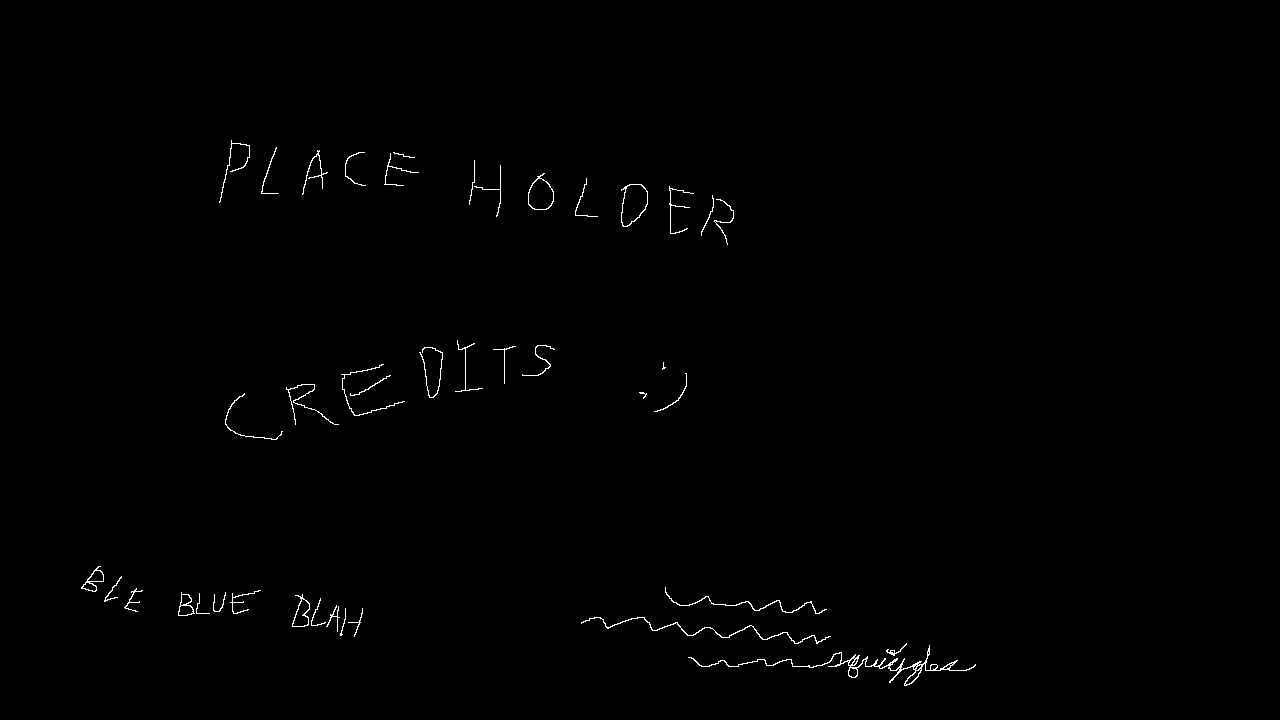 PLACE HOLDER
CREDITS :)
BLE BLUE BLAH
squiggles